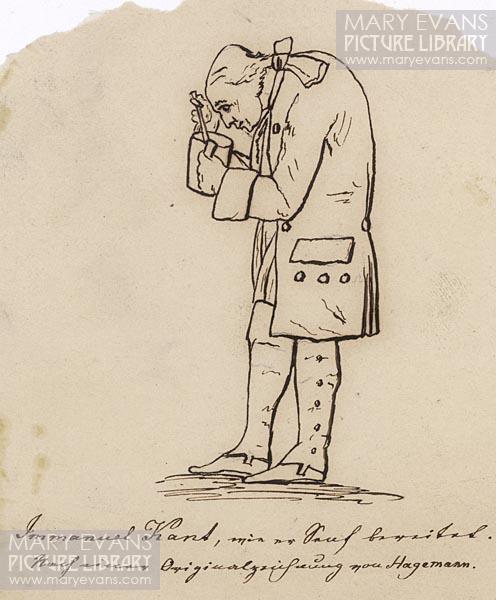 MARY EVANS
PICTURE LIBRARY
www.maryevans.com
Immanuel Kant, wie er Senf bereitet.
Originalzeichnung von Hagemann.
MARY EVANS
PICTURE LIBRARY
www.maryevans.com